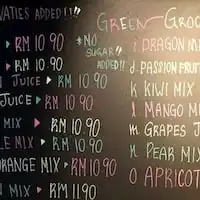 VATIES ADDED!!!
RM 10.90
RM 10.90
JUICE RM 10.90
JUICE RM 10.90
MIX RM 10.90
LE MIX RM 10.90
ORANGE MIX RM 10.90
MIX RM 11.90
*NO
SUGAR!!
ADDED!!
GREEN-GROC
i DRAGON M
d PASSION FRUIT
K KIWI MIX
l MANGO M
m GRAPES J
n PEAR MIX
O APRICOT